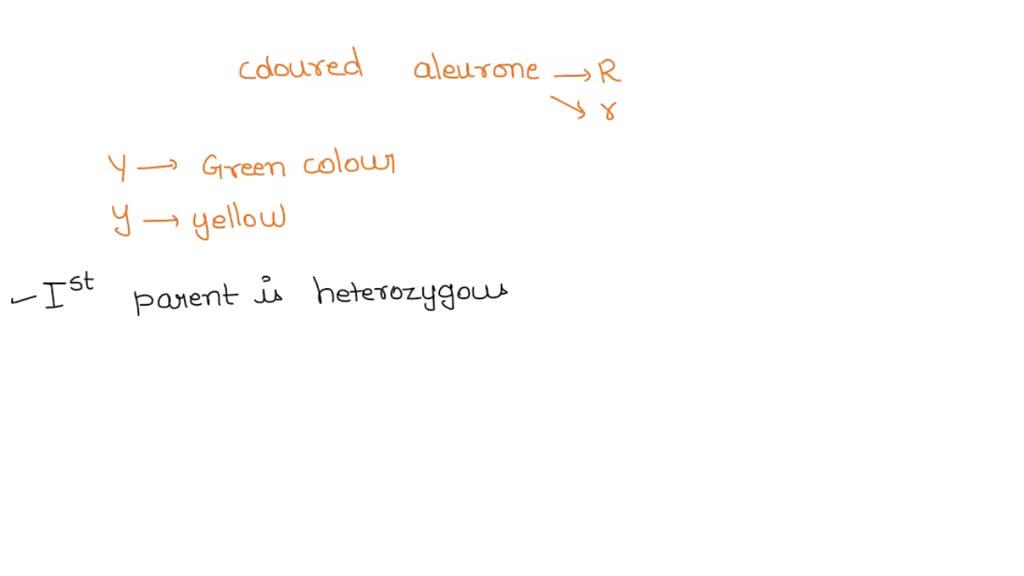 coloured aleurone → R
↘ r
Y → Green colour
y → yellow
✓ Ist parent is heterozygous